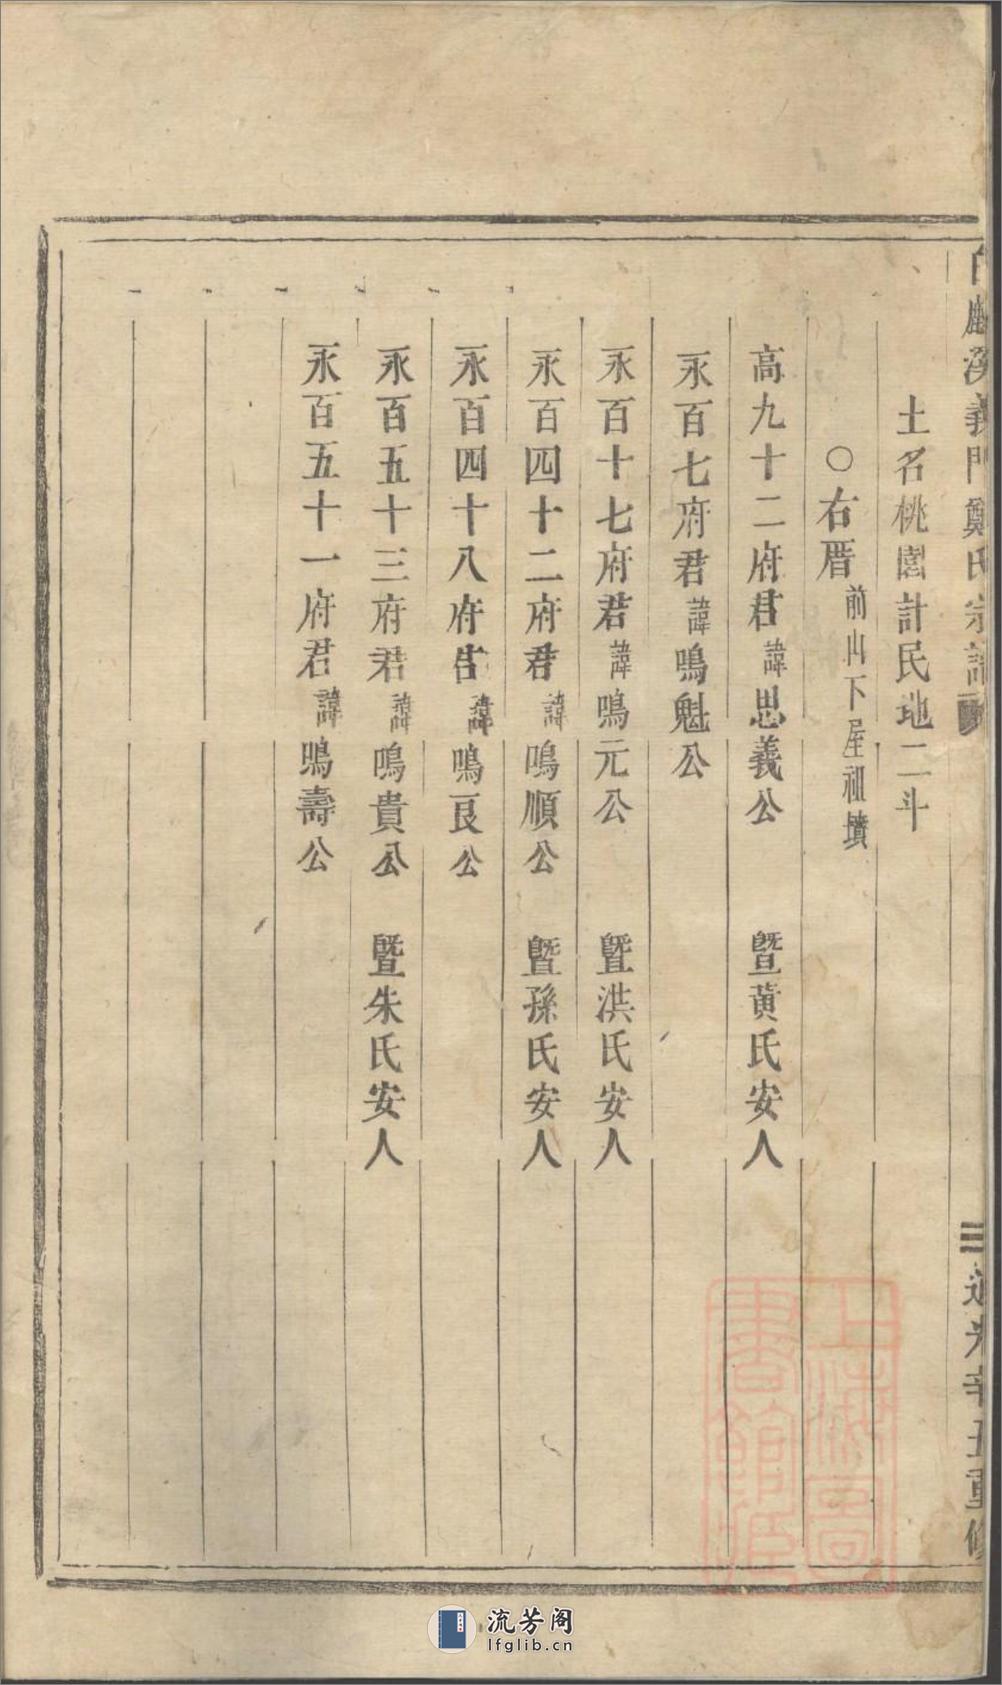 白麟溪義門鄭氏宗譜
三 道光辛丑重修
土名桃園計民地二斗
〇右厝前山下屋祖墳
高九十二府君諱思義公 暨黄氏安人
永百七府君諱鳴魁公
永百十七府君諱鳴元公 暨洪氏安人
永百四十二府君諱鳴順公 暨孫氏安人
永百四十八府君諱鳴良公
永百五十三府君諱鳴貴公 暨朱氏安人
永百五十一府君諱鳴壽公
上海圖書館藏
流芳阁
lfglib.cn